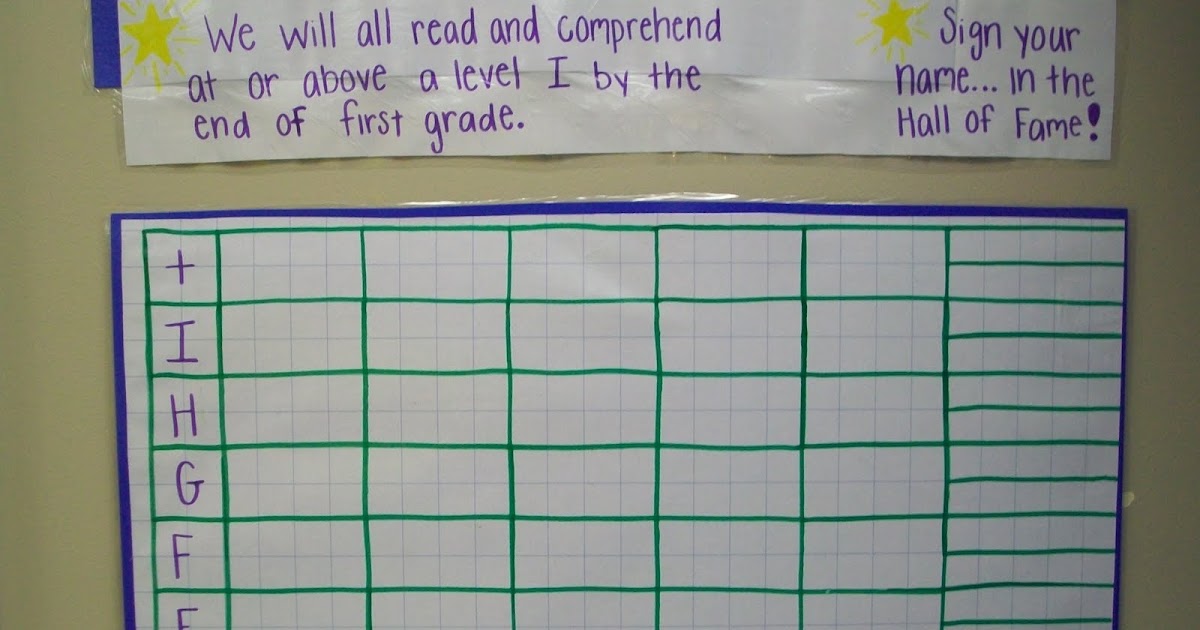 We will all read and comprehend
at or above a level I by the
end of first grade.
Sign your
name... in the
Hall of Fame!
+
I
H
G
F